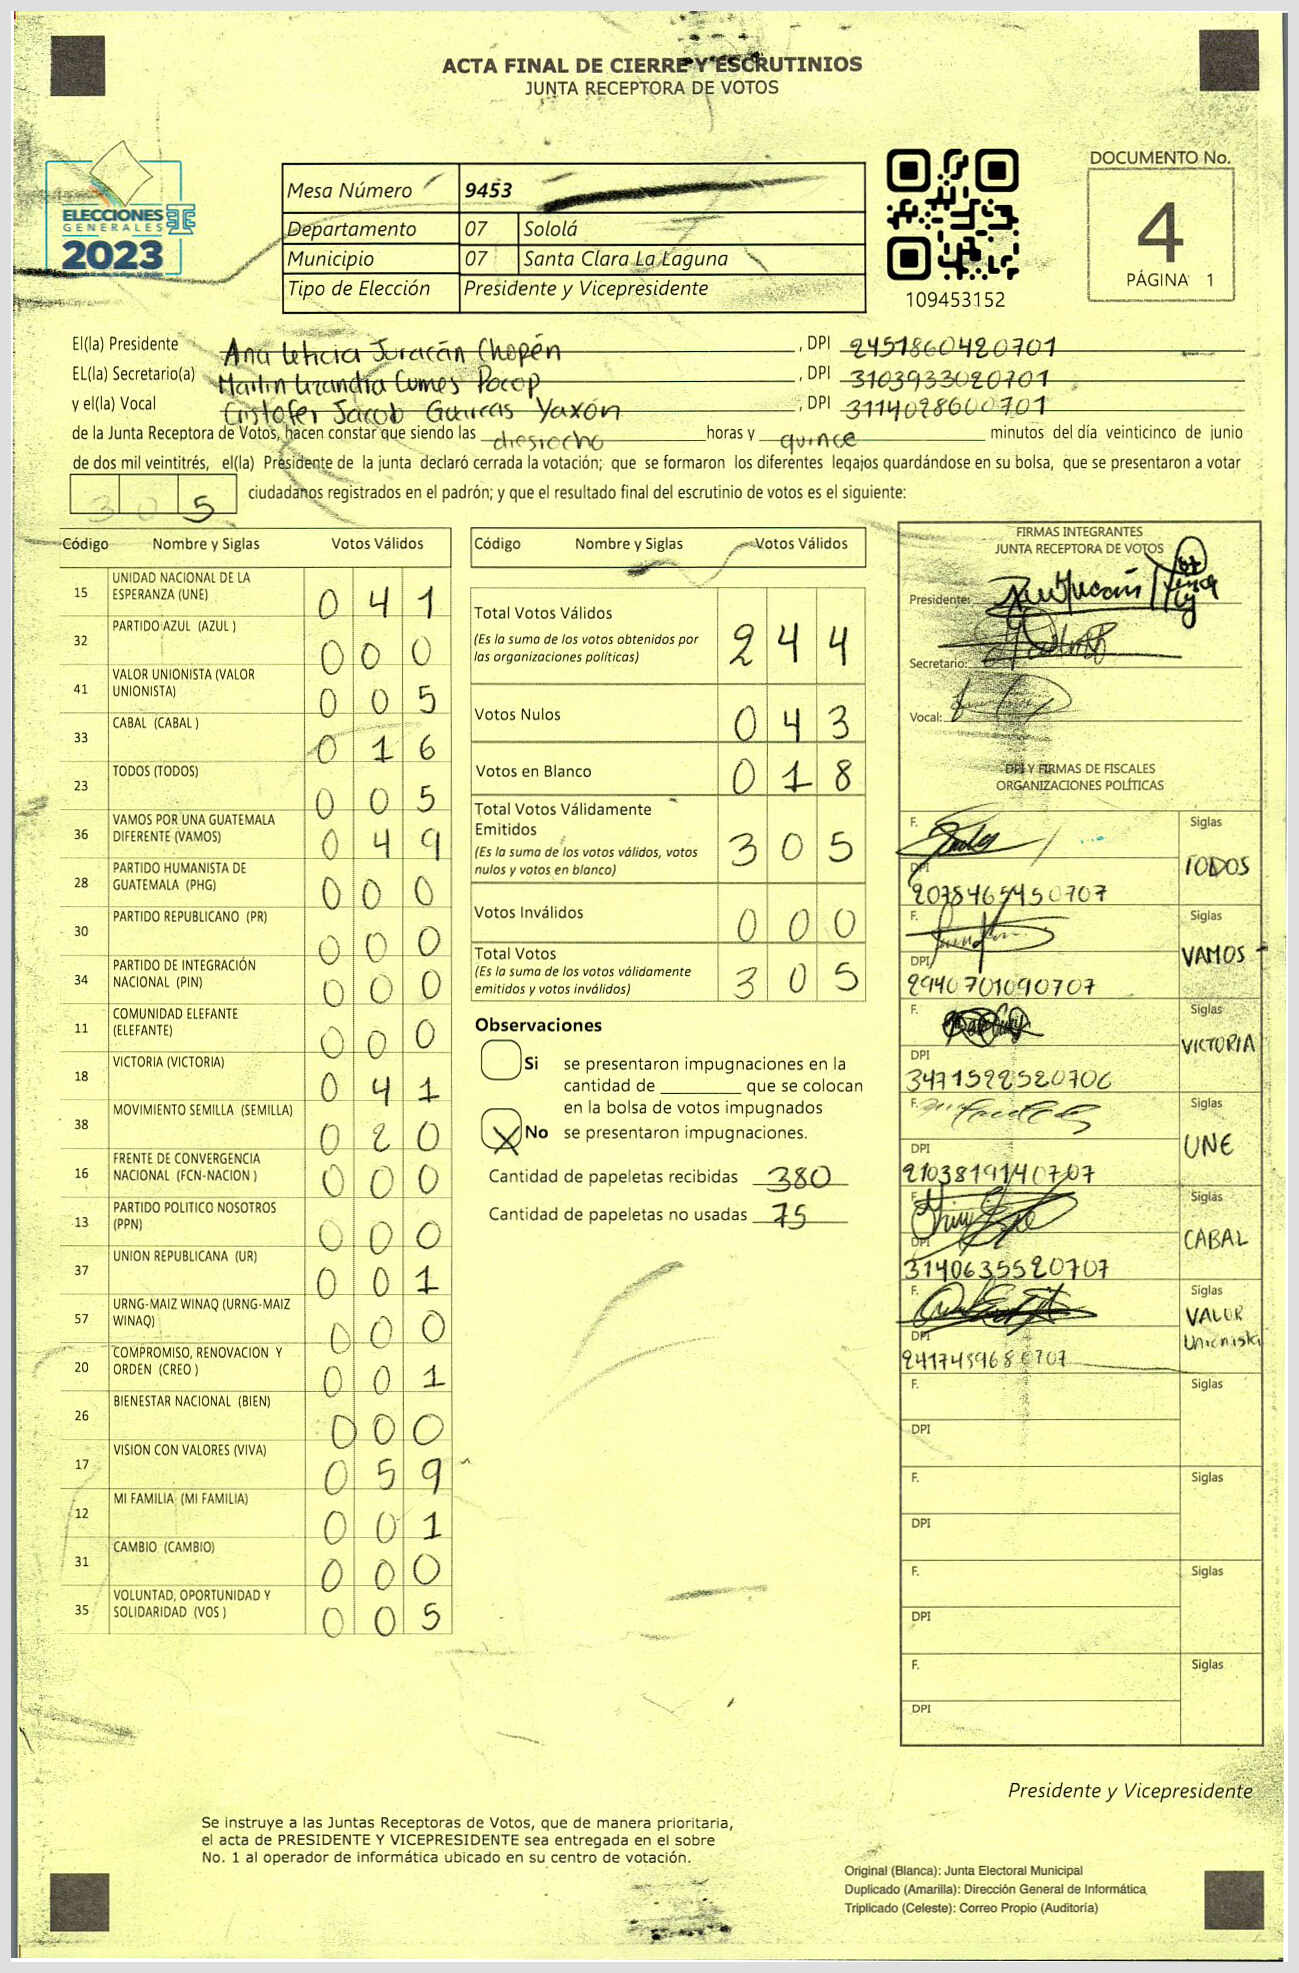 ACTA FINAL DE CIERRE Y ESCRUTINIOS
JUNTA RECEPTORA DE VOTOS
ELECCIONES
GENERALES
2023
Mesa Número 9453
Departamento 07 Sololá
Municipio 07 Santa Clara La Laguna
Tipo de Elección Presidente y Vicepresidente
109453152
DOCUMENTO No.
4
PÁGINA 1
El(la) Presidente Ana Leticia Juracán Chopén, DPI 2451860420701
EL(la) Secretario(a) Cumes Pocop, DPI 3103933020701
y el(la) Vocal Cristofer Jacob Yaxón, DPI 3114028600701
de la Junta Receptora de Votos, hacen constar que siendo las diesiocho horas y quince minutos del día veinticinco de junio
de dos mil veintitrés, el(la) Presidente de la junta declaró cerrada la votación; que se formaron los diferentes legajos guardándose en su bolsa, que se presentaron a votar
305 ciudadanos registrados en el padrón; y que el resultado final del escrutinio de votos es el siguiente:
Código Nombre y Siglas Votos Válidos
15 UNIDAD NACIONAL DE LA ESPERANZA (UNE) 041
32 PARTIDO AZUL (AZUL ) 000
41 VALOR UNIONISTA (VALOR UNIONISTA) 005
33 CABAL (CABAL ) 016
23 TODOS (TODOS) 005
36 VAMOS POR UNA GUATEMALA DIFERENTE (VAMOS) 049
28 PARTIDO HUMANISTA DE GUATEMALA (PHG) 000
30 PARTIDO REPUBLICANO (PR) 000
34 PARTIDO DE INTEGRACIÓN NACIONAL (PIN) 000
11 COMUNIDAD ELEFANTE (ELEFANTE) 000
18 VICTORIA (VICTORIA) 041
38 MOVIMIENTO SEMILLA (SEMILLA) 020
16 FRENTE DE CONVERGENCIA NACIONAL (FCN-NACION ) 000
13 PARTIDO POLITICO NOSOTROS (PPN) 000
37 UNION REPUBLICANA (UR) 001
57 URNG-MAIZ WINAQ (URNG-MAIZ WINAQ) 000
20 COMPROMISO, RENOVACION Y ORDEN (CREO ) 001
26 BIENESTAR NACIONAL (BIEN) 000
17 VISION CON VALORES (VIVA) 059
12 MI FAMILIA (MI FAMILIA) 001
31 CAMBIO (CAMBIO) 000
35 VOLUNTAD, OPORTUNIDAD Y SOLIDARIDAD (VOS ) 005
Código Nombre y Siglas Votos Válidos
Total Votos Válidos 244
(Es la suma de los votos obtenidos por
las organizaciones políticas)
Votos Nulos 043
Votos en Blanco 018
Total Votos Válidamente
Emitidos 305
(Es la suma de los votos válidos, votos
nulos y votos en blanco)
Votos Inválidos 000
Total Votos 305
(Es la suma de los votos válidamente
emitidos y votos inválidos)
Observaciones
Si se presentaron impugnaciones en la
cantidad de ________ que se colocan
en la bolsa de votos impugnados
X No se presentaron impugnaciones.
Cantidad de papeletas recibidas 380
Cantidad de papeletas no usadas 75
FIRMAS INTEGRANTES
JUNTA RECEPTORA DE VOTOS
Presidente:
Secretario:
Vocal:
DPI Y FIRMAS DE FISCALES
ORGANIZACIONES POLÍTICAS
F. Siglas
TODOS
DPI
2078465450707
F. Siglas
VAMOS
DPI
2940701090707
F. Siglas
VICTORIA
DPI
3471522520706
F. Siglas
UNE
DPI
2103819140707
F. Siglas
CABAL
DPI
3140635520707
F. Siglas
VALOR
Unionista
DPI
2417459680707
F. Siglas
DPI
F. Siglas
DPI
F. Siglas
DPI
F. Siglas
DPI
Presidente y Vicepresidente
Se instruye a las Juntas Receptoras de Votos, que de manera prioritaria,
el acta de PRESIDENTE Y VICEPRESIDENTE sea entregada en el sobre
No. 1 al operador de informática ubicado en su centro de votación.
Original (Blanca): Junta Electoral Municipal
Duplicado (Amarilla): Dirección General de Informática
Triplicado (Celeste): Correo Propio (Auditoría)